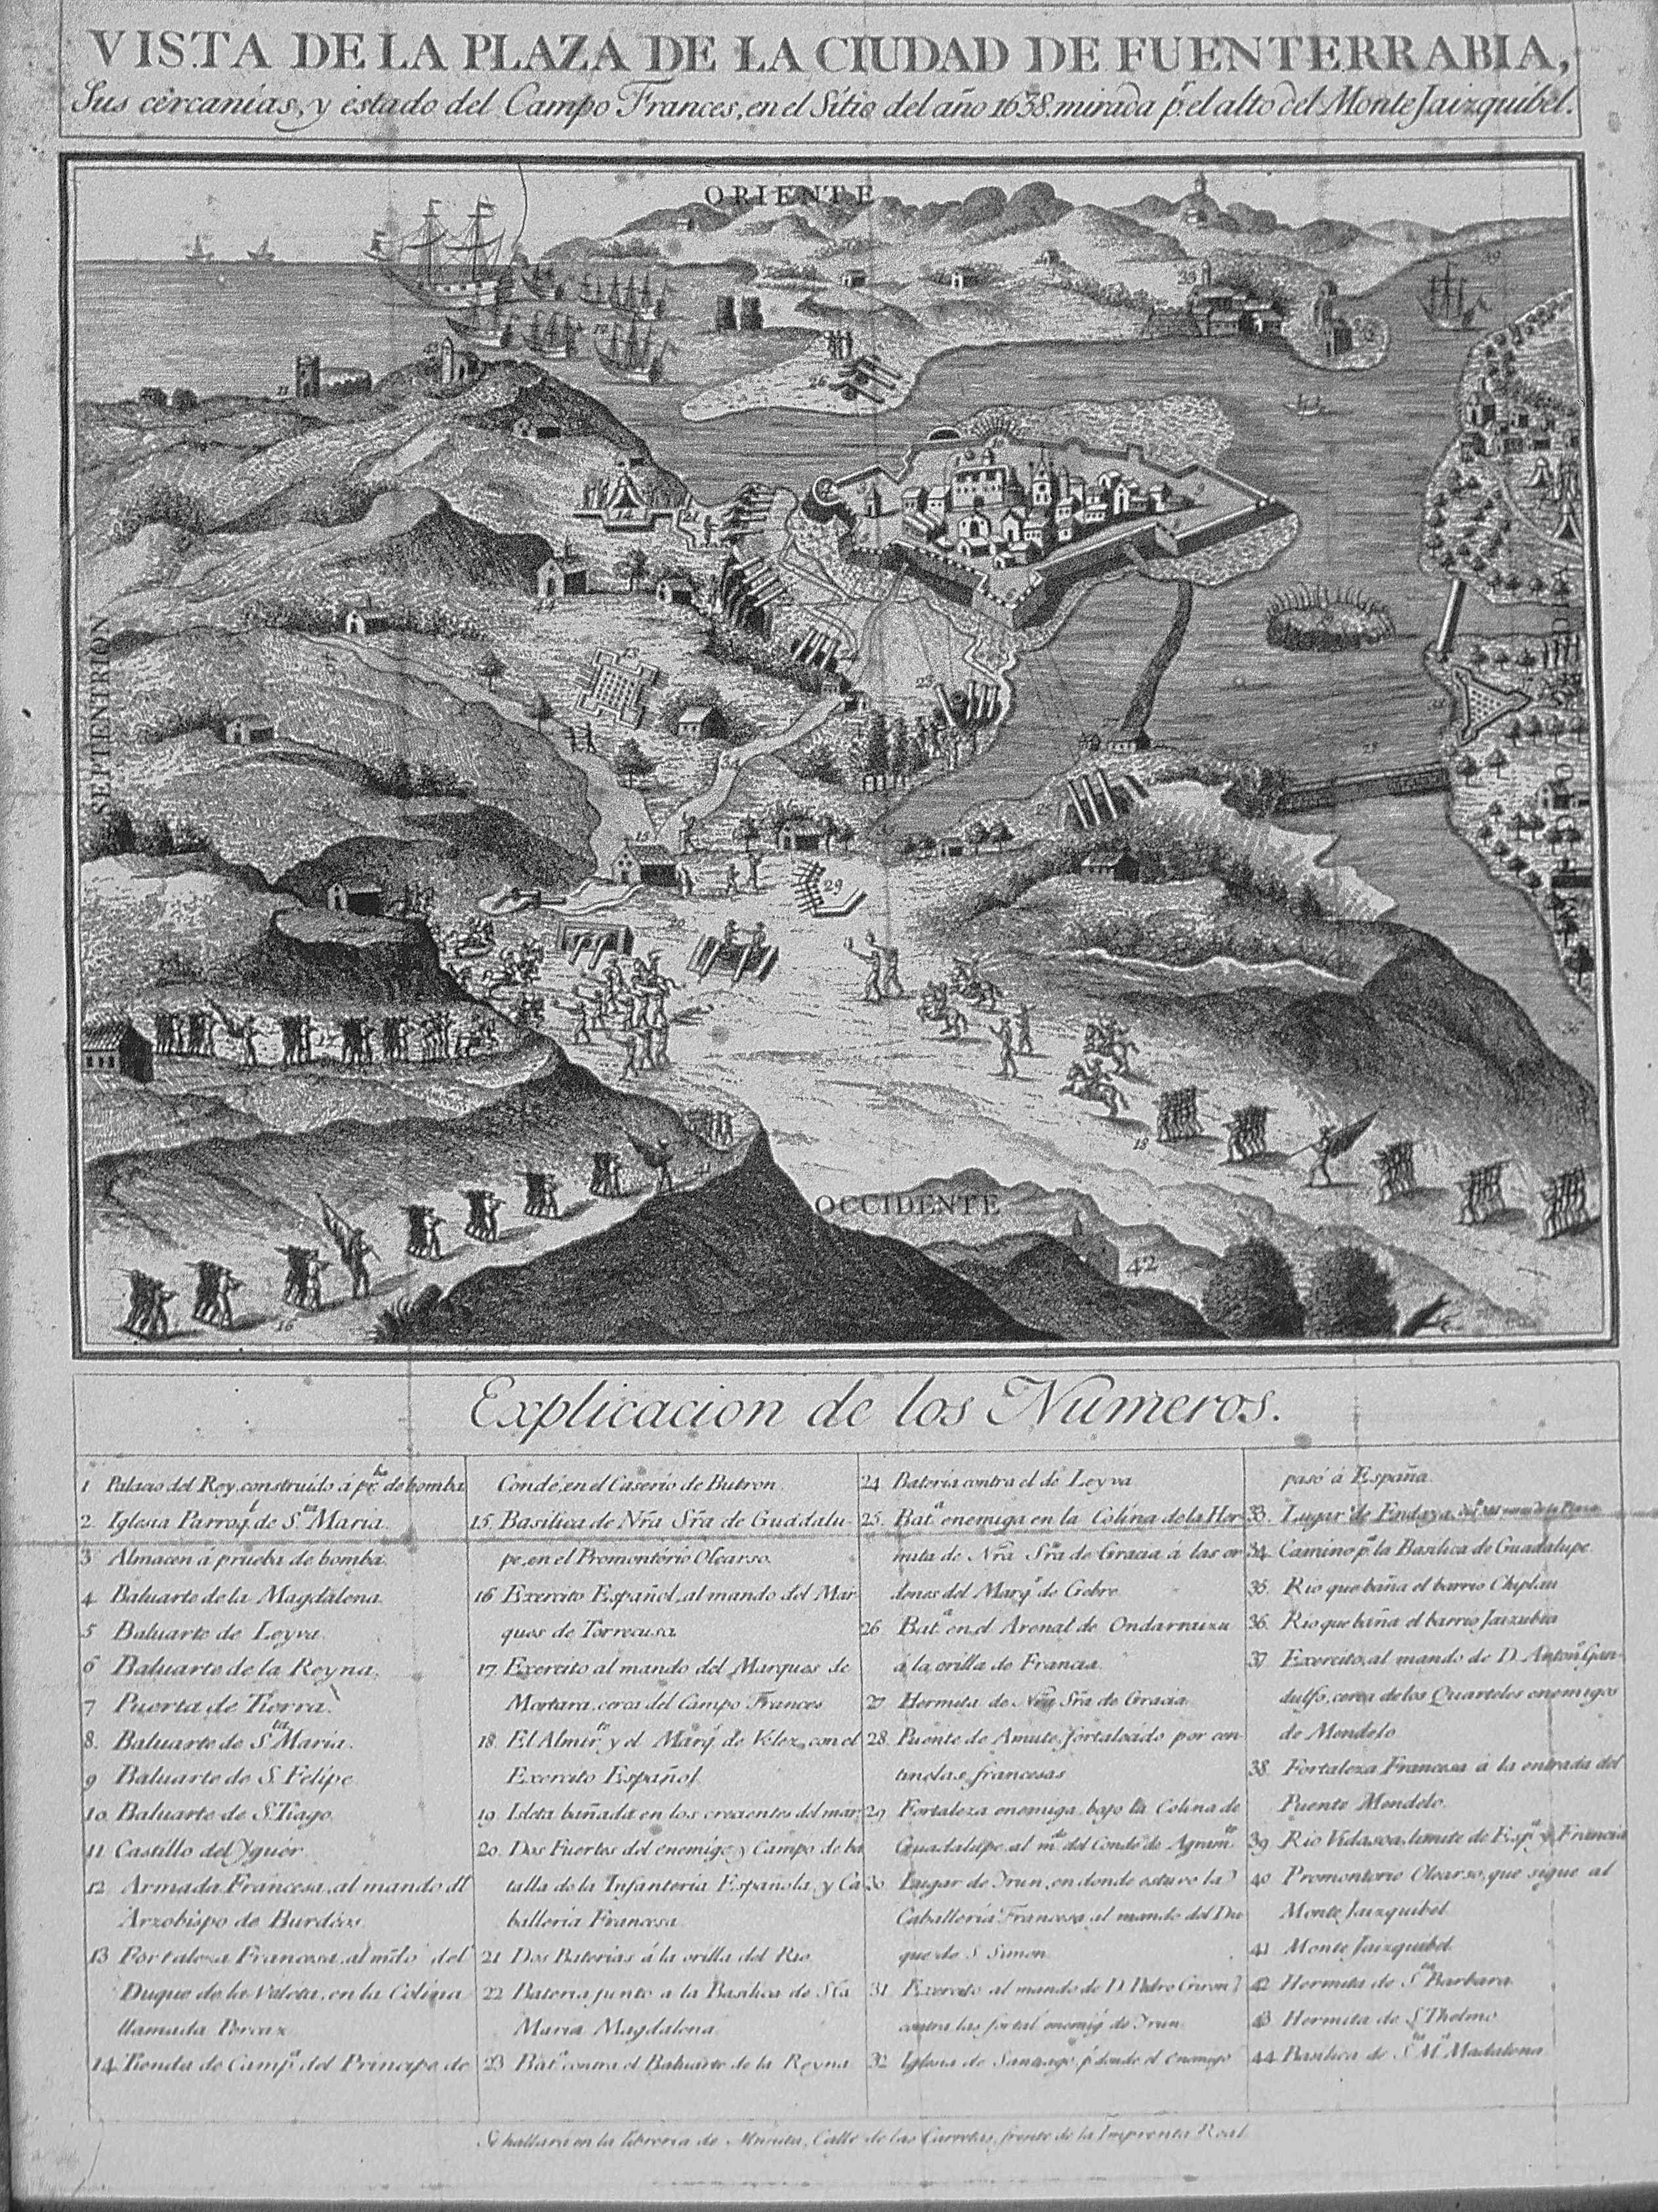 VISTA DE LA PLAZA DE LA CIUDAD DE FUENTERRABIA,
Sus cercanías, y estado del Campo Frances, en el Sitio del año 1638. mirada pr. el alto del Monte Jaizquibel.
ORIENTE
SEPTENTRION
OCCIDENTE
42
Explicacion de los Numeros.
1 Palacio del Rey, construido á pr. de bomba
2. Iglesia Parroql. de Sta. Maria.
3 Almacen á prueba de bomba.
4 Baluarte de la Magdalena
5 Baluarte de Leyva.
6 Baluarte de la Reyna.
7 Puerta de Tierra.
8. Baluarte de Sta. Maria.
9 Baluarte de S. Felipe
10. Baluarte de S. Tiago.
11 Castillo del Yguér
12 Armada Francesa, al mando dl
Arzobispo de Burdeos
13 Fortaleza Francesa, al mdo del
Duque de la Valeta, en la Colina
llamada Porcaz
14. Tienda de Campa. del Principe de
Condé, en el Caserio de Butron.
15. Basilica de Nra Sra de Guadalu-
pe, en el Promontorio Olearso.
16 Exercito Español, al mando del Mar-
ques de Torrecusa
17. Exercito al mando del Marques de
Mortara, cerca del Campo Frances
18. El Almirte. y el Marq. de Velez, con el
Exercito Español
19. Isleta bañada en los crecientes del mar
20. Dos Fuertes del enemigo, y Campo de ba
talla de la Infanteria Española, y Ca
balleria Francesa
21 Dos Baterías á la orilla del Rio
22 Bateria junto a la Basilica de Sta
Maria Magdalena
23 Bata. contra el Baluarte de la Reyna
24 Bateria contra el de Leyva
25. Bata. enemiga en la Colina de la Her-
mita de Nra Sra de Gracia á las or
denes del Marqs. de Gebre
26 Bata. en el Arenal de Ondarraizu
á la orilla de Francia
27 Hermita de Nra Sra de Gracia
28. Puente de Amute, fortalecido por cen-
tinelas francesas
29 Fortaleza enemiga, bajo la Colina de
Guadalupe, al mdo. del Conde de Agramte.
30 Lugar de Irun, en donde estuvo la
Caballeria Francesa, al mando del Du
que de S. Simon
31 Exercito al mando de D. Pedro Giron
contra las fortal. enemig. de Irun
32 Iglesia de Santiago, p. donde el enemigo
pasó á España.
33. Lugar de Endaya,
34. Camino pa. la Basilica de Guadalupe
35. Rio que baña el barrio Chiplau
36. Rio que baña el barrio Jaizubia
37 Exercito, al mando de D. Anton. Gan-
dulfo, cerca de los Quarteles enemigos
de Mendelo
38. Fortaleza Francesa á la entrada del
Puente Mendelo.
39 Rio Vidasoa, limite de Espa. y Francia
40 Promontorio Olearso, que sigue al
Monte Jaizquibel
41 Monte Jaizquibel
42 Hermita de Sta. Barbara
43 Hermita de S. Thelmo
44 Basilica de Sta. Ma. Madalena
Se hallará en la Libreria de Calle de las Carretas, frente de la Imprenta Real